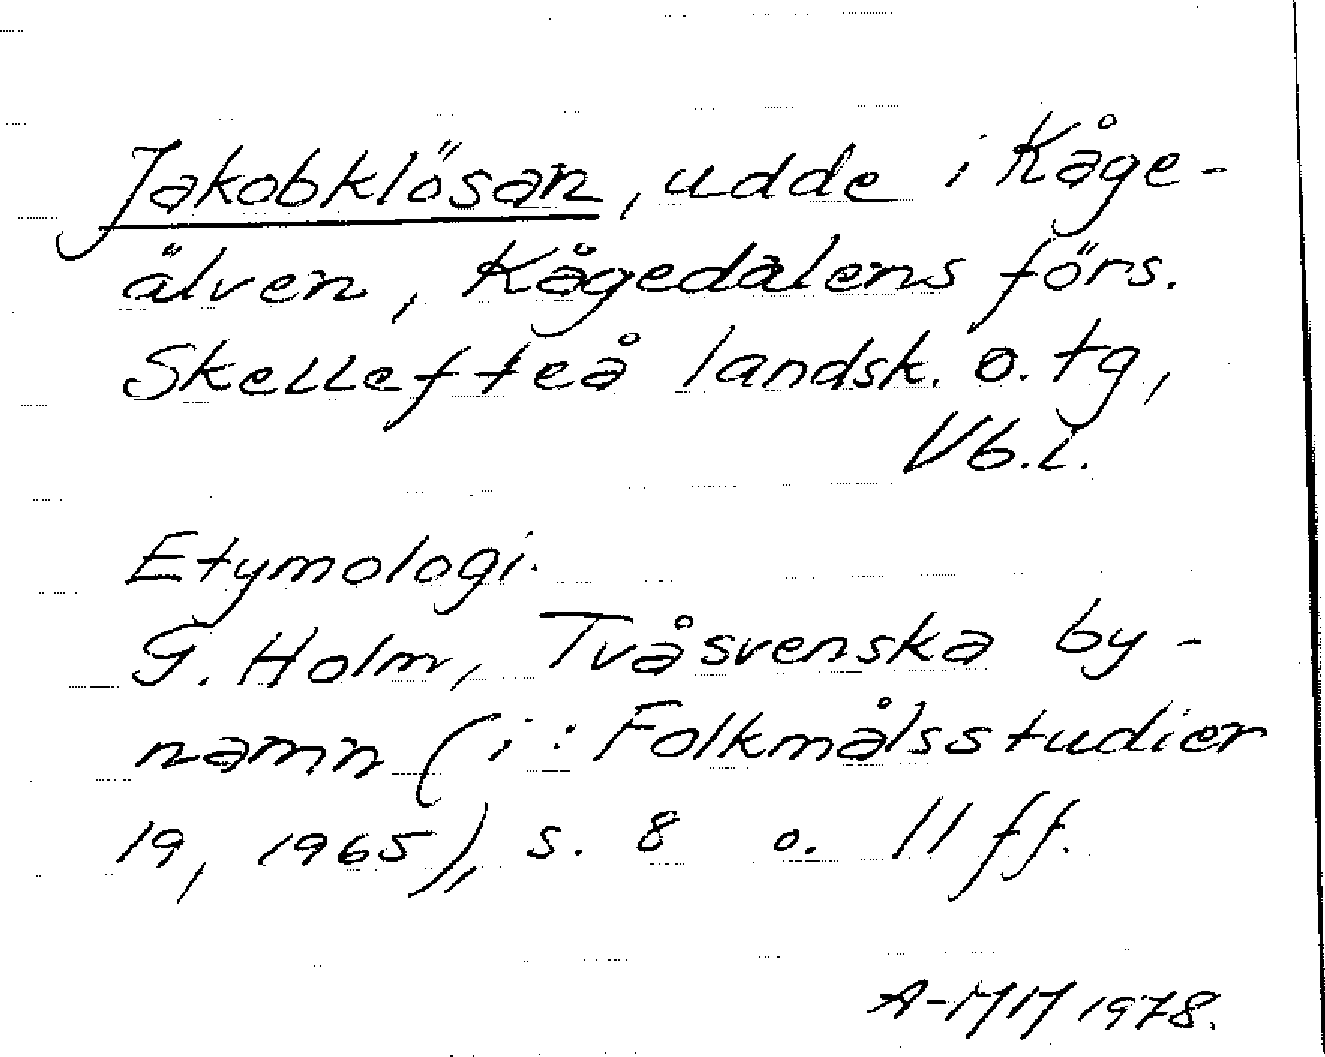 Jakobklösan, udde i Kåge-
älven, Kågedalens förs.
Skellefteå landsk. o. tg,
Vb.l.
Etymologi.
G. Holm, Två svenska by-
namn (i: Folkmålsstudier
19, 1965), s. 8 o. 11 ff.
A-MM 1978.